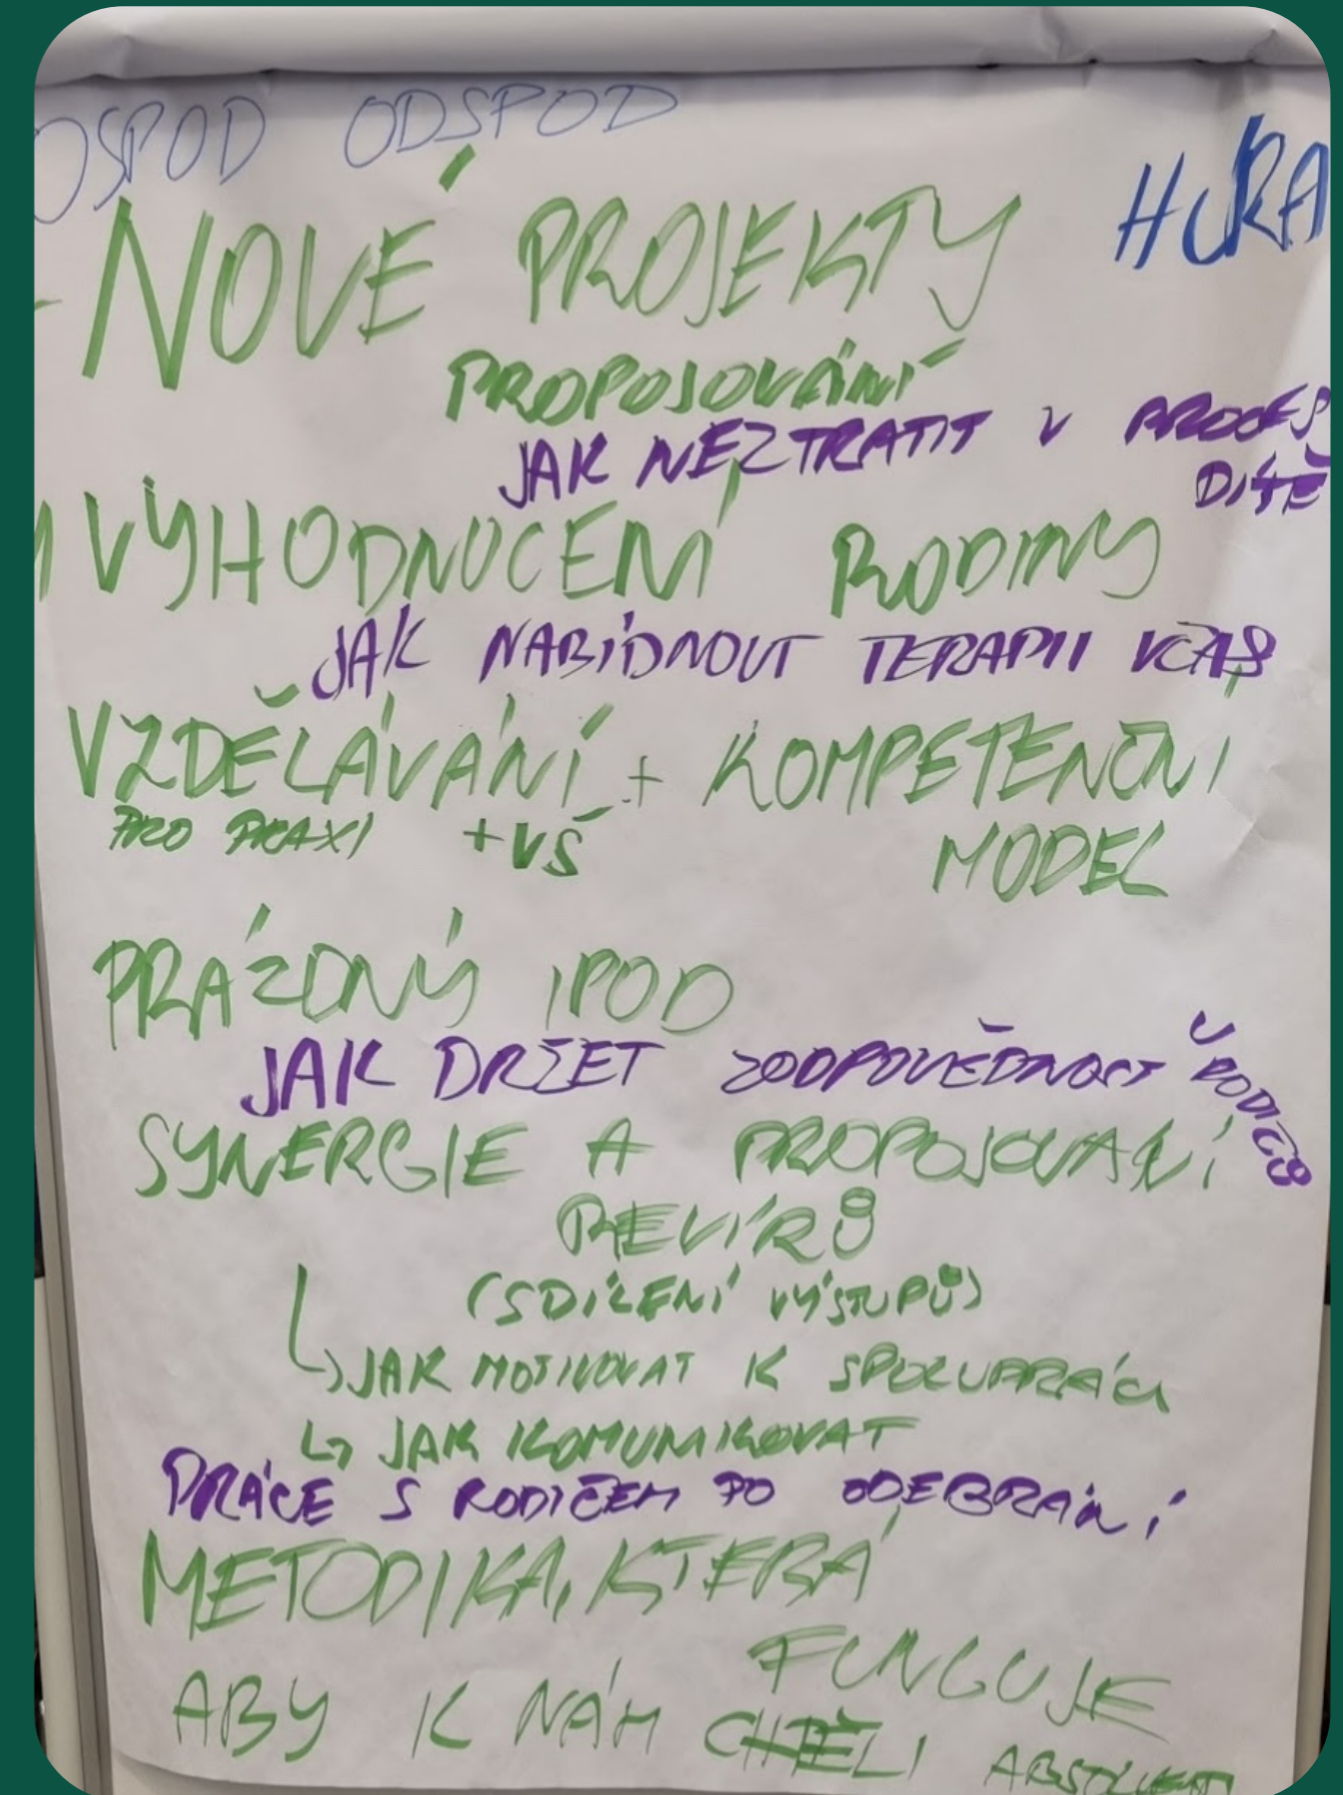 OSPOD ODSPOD
HURA
- NOVÉ PROJEKTY
PROPOJOVÁNÍ
JAK NEZTRATIT V PROCES
DÍTĚ
VYHODNOCENÍ RODINY
JAK NABÍDNOUT TERAPII VČAS
VZDĚLÁVÁNÍ + KOMPETENČNÍ
PRO PRAXI +VŠ
MODEL
PRÁZDNÝ IPOD
JAK DRŽET ZODPOVĚDNOST U RODIČŮ
SYNERGIE A PROPOJOVÁNÍ
REVÍRŮ
(SDÍLENÍ VÝSTUPŮ)
↳ JAK MOTIVOVAT K SPOLUPRÁCI
↳ JAK KOMUNIKOVAT
PRÁCE S RODIČEM PO ODEBRÁNÍ
METODIKA, KTERÁ
FUNGUJE
ABY K NÁM CHTĚLI ABSOLVENTI